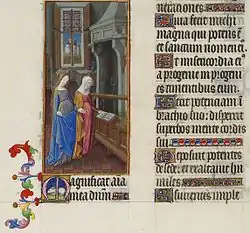 Magnificat aia
mea dnm
nerationes.
Quia fecit
magna qui potens e
et sanctum nomen e
Et misericordia e
a progenie in progenies
timentibus eum.
Fecit potentiam i
brachio suo: dispersit
superbos mente cordis
sui
Deposuit potentes
de sede: et exaltavit hu
miles
Esurientes imple